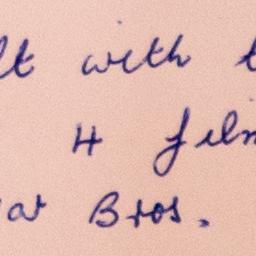 lt with t
4 film
ar Bros.